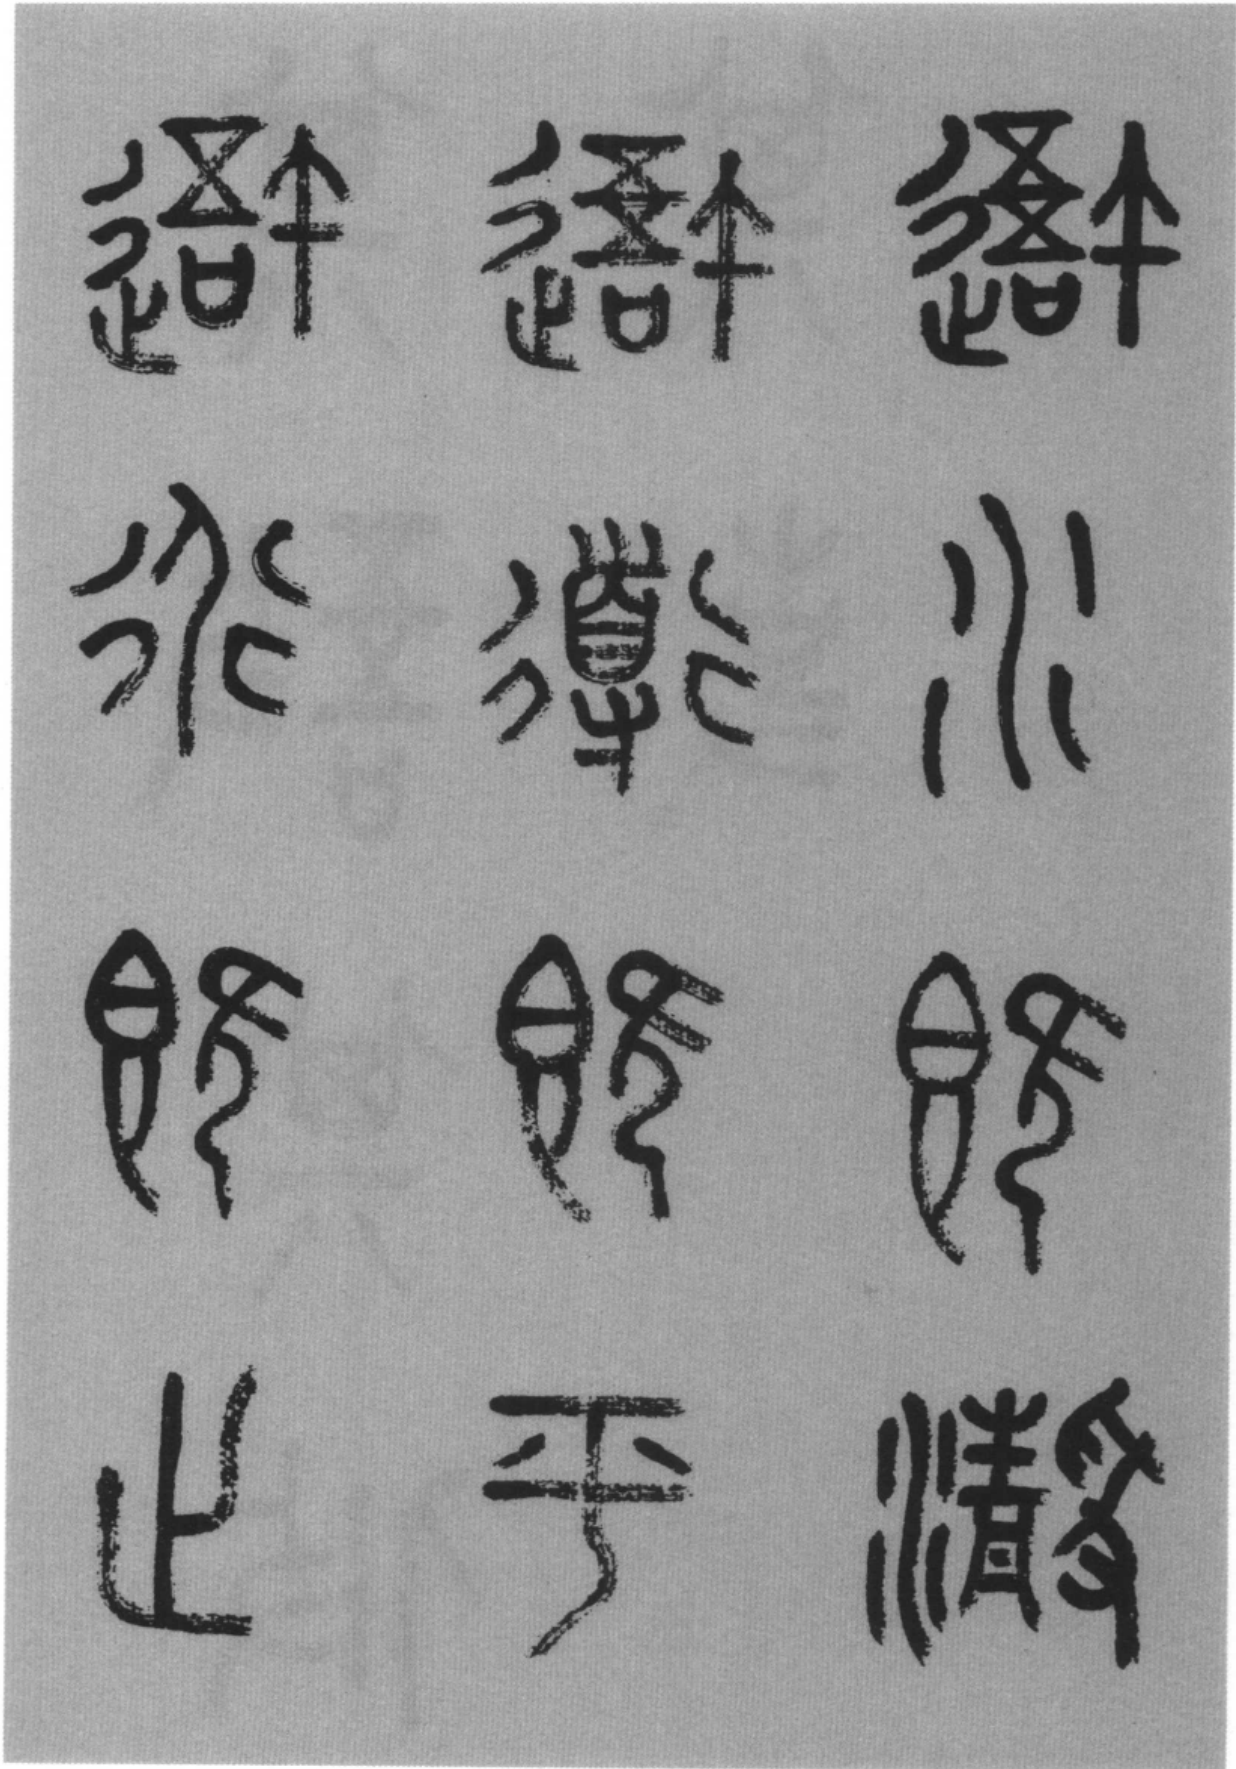 吾水既瀞
吾導既平
吾行既止